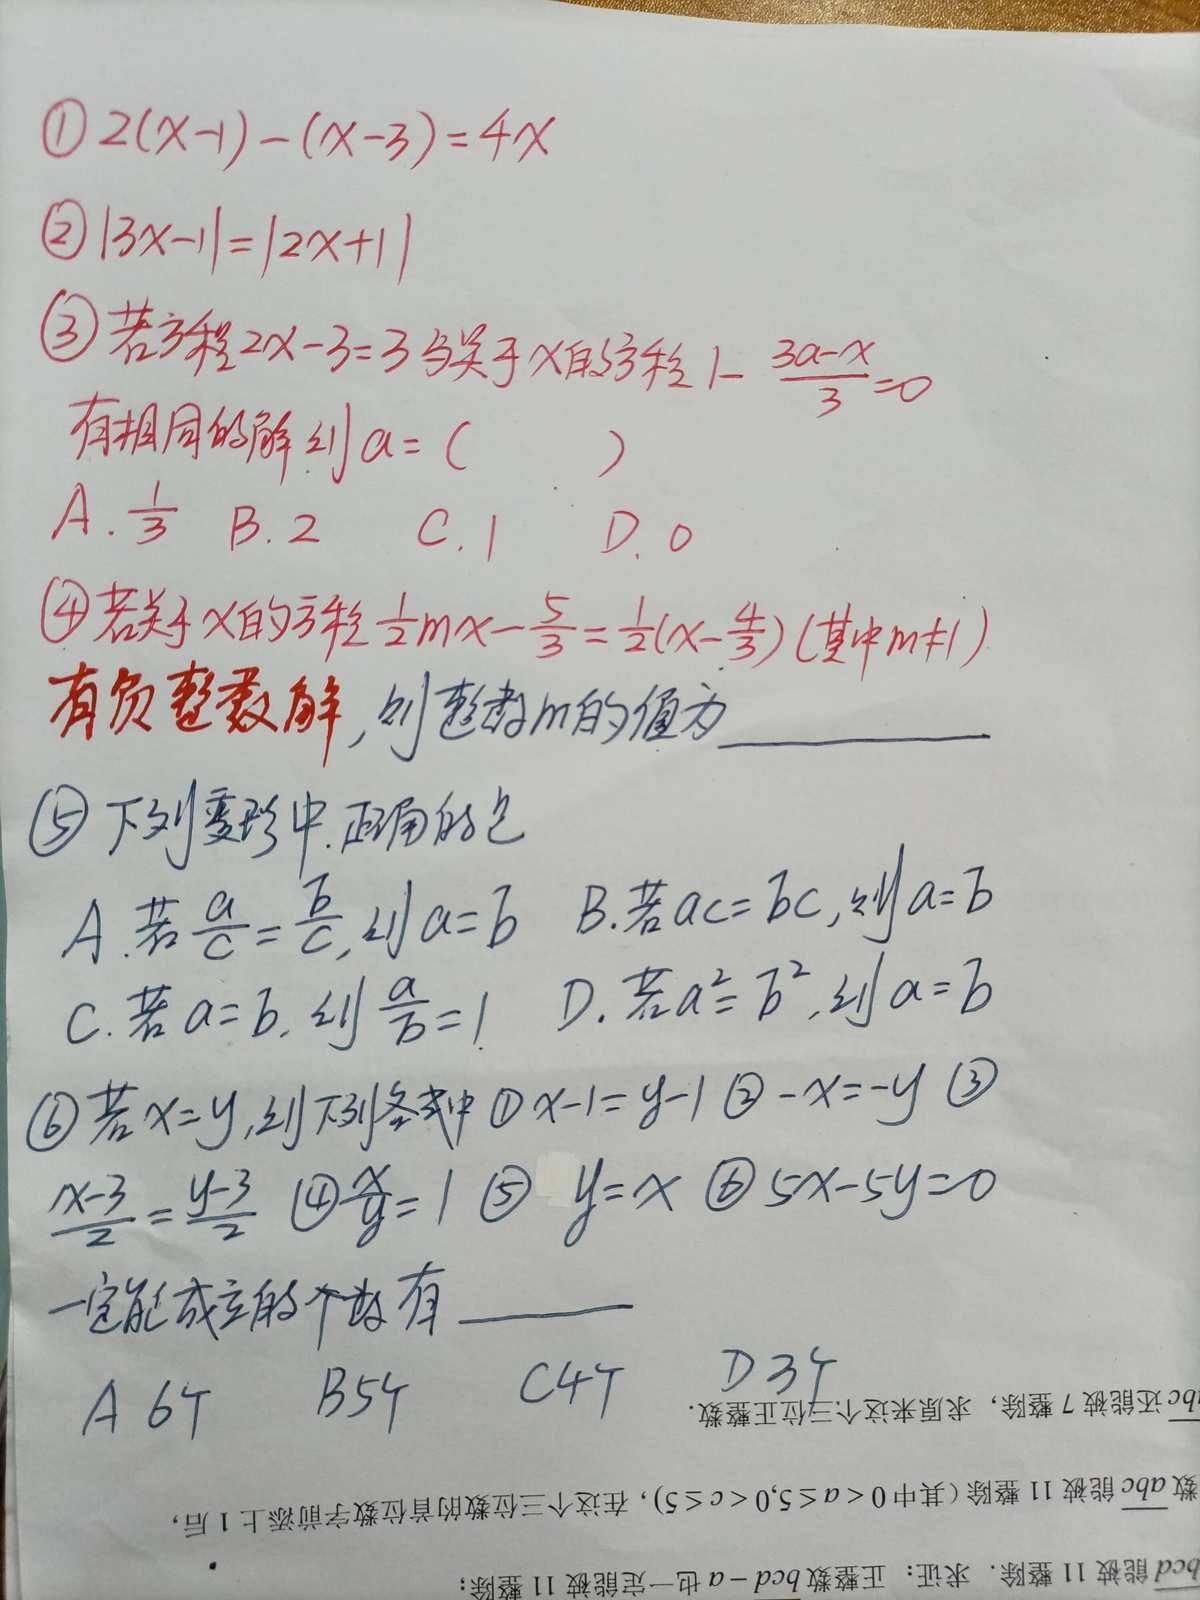 ① 2(x-1)-(x-3)=4x
② |3x-1|=|2x+1|
③ 若方程2x-3=3与关于x的方程1-\frac{3a-x}{3}=0
有相同的解则a=( )
A. \frac{1}{3} B. 2 C. 1 D. 0
④若关于x的方程\frac{1}{2}mx-\frac{5}{3}=\frac{1}{2}(x-\frac{4}{3})(其中m≠1)
有负整数解,则整数m的值为______
⑤ 下列变形中.正确的是
A. 若\frac{a}{c}=\frac{b}{c},则a=b B. 若ac=bc,则a=b
C. 若a=b,则\frac{a}{b}=1 D. 若a²=b²,则a=b
⑥若x=y,则下列各式中①x-1=y-1 ②-x=-y ③
\frac{x-3}{2}=\frac{y-3}{2} ④\frac{x}{y}=1 ⑤ y=x ⑥5x-5y=0
一定能成立的个数有______
A 6个 B 5个 C 4个 D 3个
bcd能被11整除.求证:正整数bcd-a也一定能被11整除;
数abc能被11整除(其中0<a≤5,0<c≤5),在这个三位数的首位数字前添上1后,
abc还能被7整除,求原来这个三位正整数.